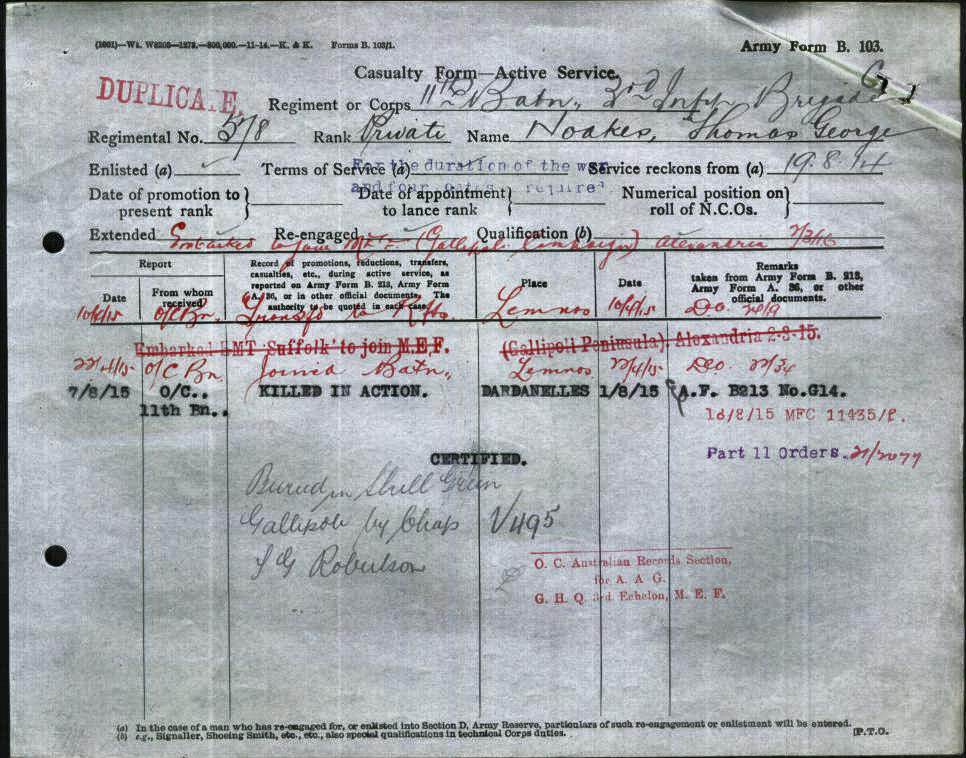 (1601)—Wt. W8205—1278.—800,000.—11-14.—K. & K. Forms B. 103/1.
Army Form B. 103.
Casualty Form—Active Service.
DUPLICATE
Regiment or Corps 11th Batn, 3rd Inf Brigade
Regimental No. 578 Rank Private Name Noakes, Thomas George
Enlisted (a) Terms of Service (a) For the duration of the war Service reckons from (a) 19.8.14
and four
Date of promotion to present rank Date of appointment to lance rank Numerical position on roll of N.C.Os.
Extended Re-engaged Qualification (b)
Embarked to join M.E.F. (Gallipoli Campaign) Alexandria
Report
Date From whom received
Record of promotions, reductions, transfers, casualties, etc., during active service, as reported on Army Form B. 213, Army Form A. 36, or in other official documents. The authority to be quoted in each case.
Place
Date
Remarks taken from Army Form B. 213, Army Form A. 36, or other official documents.
O/C Bn. Lemnos Do.
Embarked HMT 'Suffolk' to join M.E.F. (Gallipoli Peninsula) Alexandria 2-3-15.
22/4/15 O/C Bn. Joined Batn,, Lemnos 22/4/15 Do.
7/8/15 O/C.. KILLED IN ACTION. DARDANELLES 1/8/15 A.F. B213 No.G14.
11th Bn..
MFC 11435/P.
Part 11 Orders. 21/2077
CERTIFIED.
Buried in Shell Green
Gallipoli by Chap V495
Robertson
O. C. Australian Records Section,
for A. A G.
G. H. Q. 3rd. Echelon, M. E. F.
(a) In the case of a man who has re-engaged for, or enlisted into Section D, Army Reserve, particulars of such re-engagement or enlistment will be entered.
(b) e.g., Signaller, Shoeing Smith, etc., etc., also special qualifications in technical Corps duties.
[P.T.O.